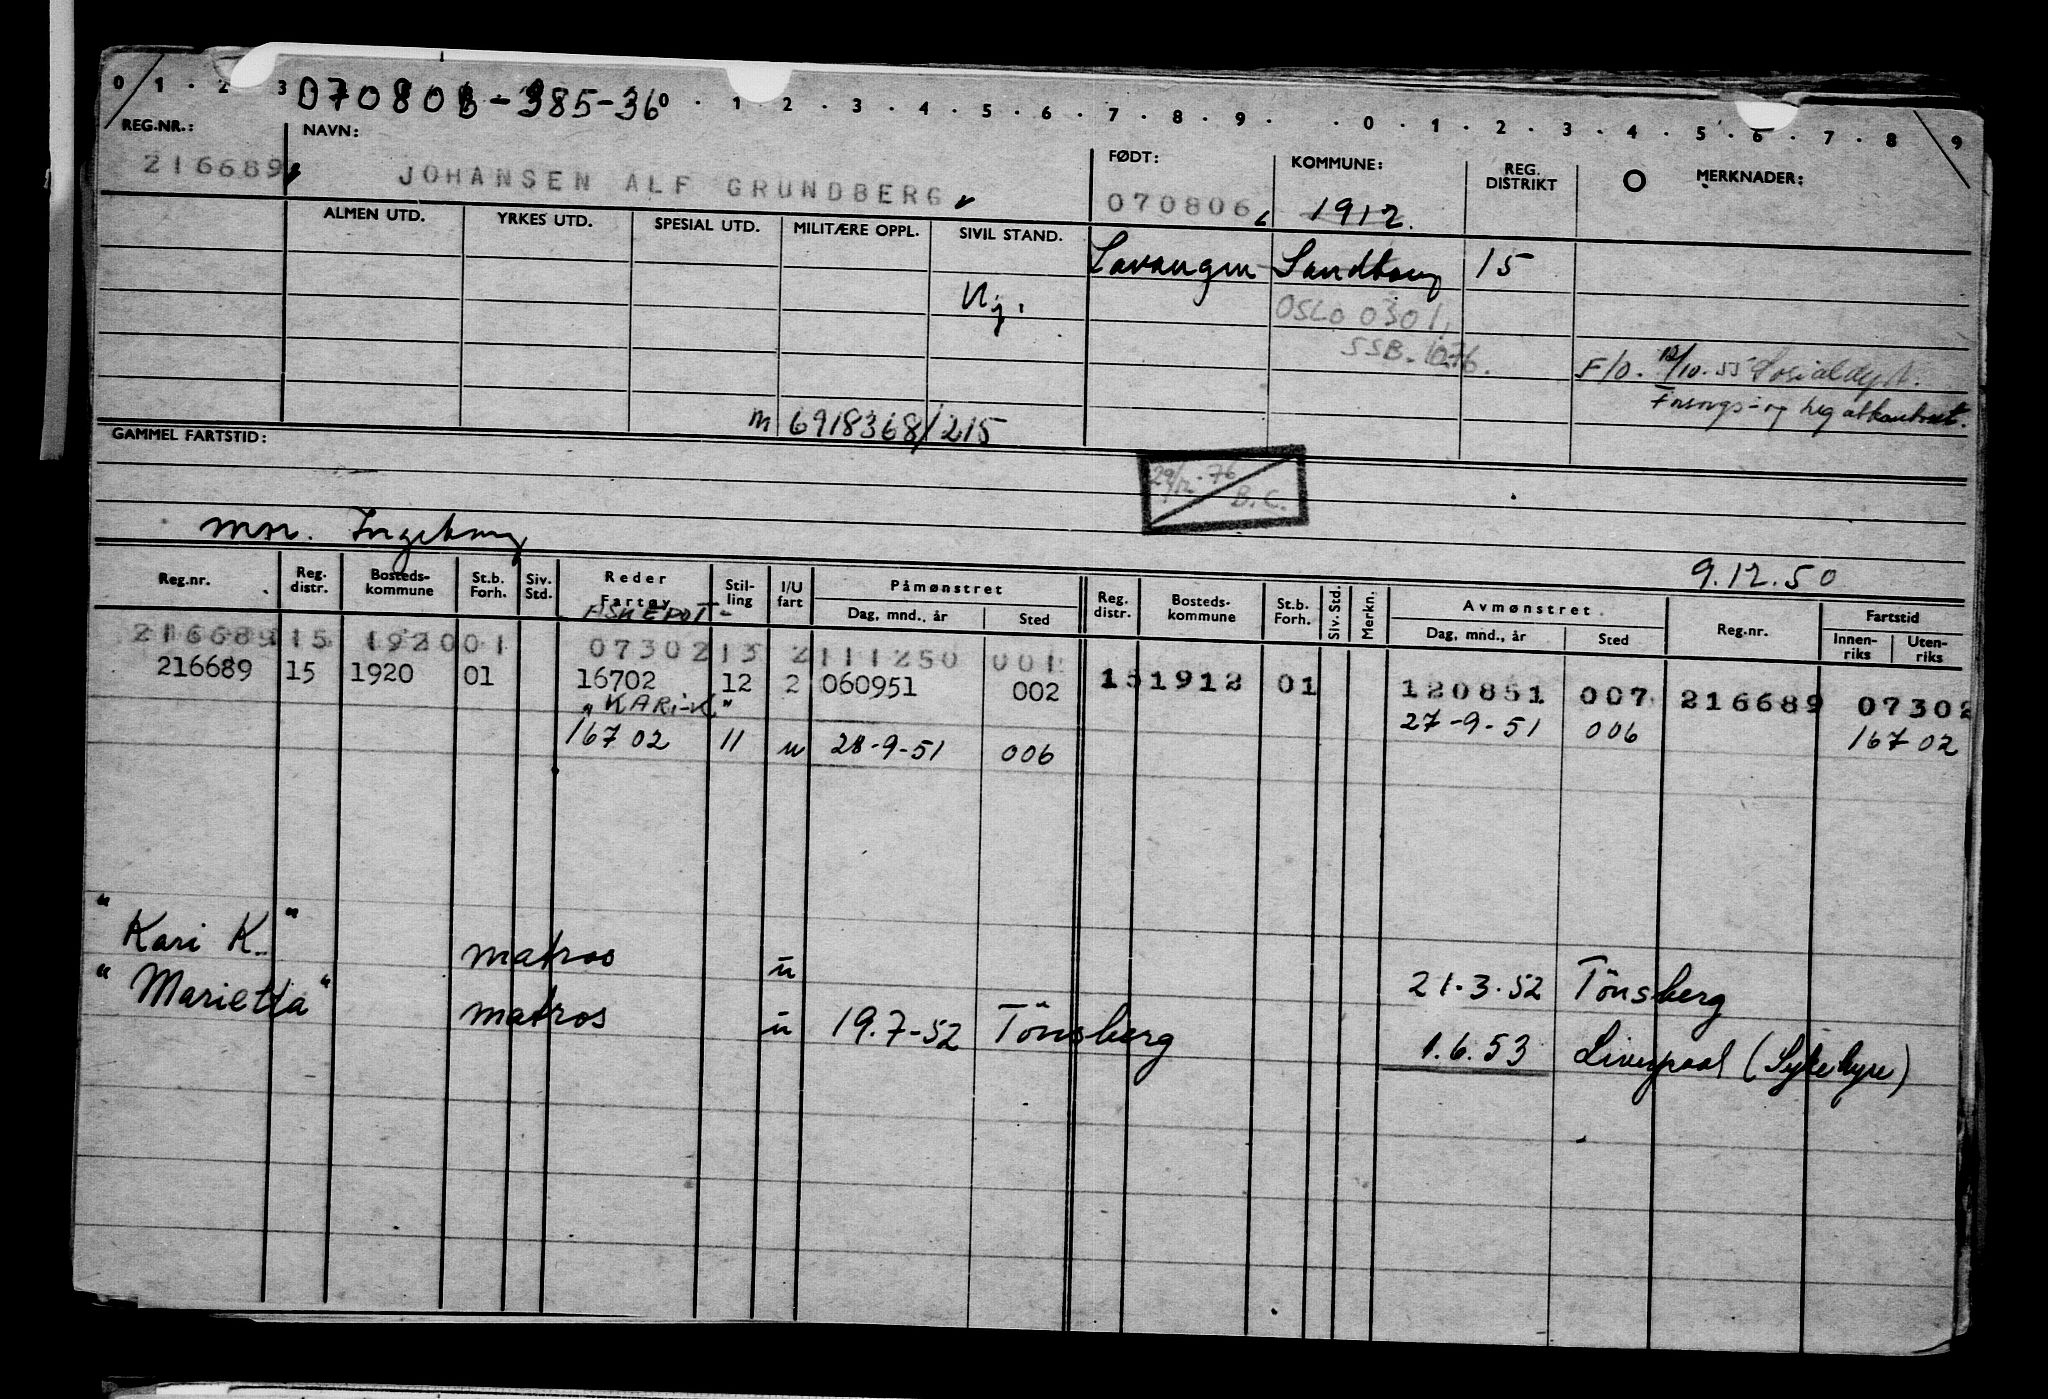 0 1 . 2 3 070806-385-36 0 . 1 . 2 . 3 . 4 . 5 . 6 . 7 . 8 . 9 . . 0 . 1 . 2 . 3 . 4 . 5 . 6 . 7 . 8 9
REG.NR.: NAVN: FØDT: KOMMUNE: REG. DISTRIKT O MERKNADER:
216689 JOHANSEN ALF GRUNDBERG 070806 1912.
ALMEN UTD. YRKES UTD. SPESIAL UTD. MILITÆRE OPPL. SIVIL STAND.
Lavangen Sandtorg 15
Uj.
OSLO 0301,
SSB.
F/O. 12/10.55
m 6918368/215
GAMMEL FARTSTID:
29/12.76
B.C.
mor. Ingeborg
9.12.50
Reg.nr. Reg. distr. Bosteds- kommune St.b. Forh. Siv. Std. Reder Fartøy Stil- ling I/U fart Påmønstret Dag, mnd., år Sted Reg. distr. Bosteds- kommune St.b. Forh. Siv. Std. Merkn. Avmønstret Dag, mnd., år Sted Reg.nr. Fartstid Innen- riks Uten- riks
216689 15 1920 01 07302 13 2 111250 001
216689 15 1920 01 16702 12 2 060951 002 15 1912 01 120851 007 216689 07302
"KARI-K"
16702 11 u 28-9-51 006 27-9-51 006 16702
"Kari K." matros u 21.3.52 Tönsberg
"Marietta" matros u 19.7-52 Tönsberg 1.6.53 Liverpool (Sykehyre)